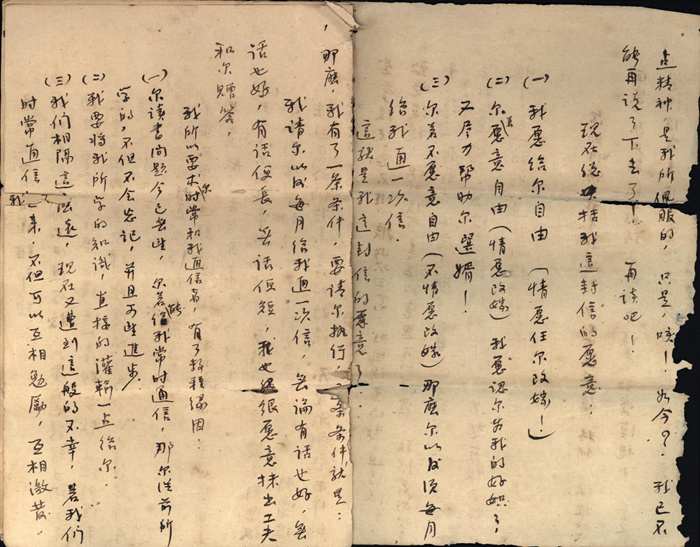 点精神,是我所佩服的,只是,咳!如今?我已不
能再说了下去了!再谈吧!
现在总括我这封信的愿意:
(一)我愿给尔自由(情愿任尔改嫁!)
(二)尔若愿意自由(情愿改嫁)我愿认尔为我的好妹,
又尽力帮助尔选婿!
(三)尔若不愿意自由(不情愿改嫁)那么尔以后须每月
给我通一次信.
这就是我这封信的意了.
那麽,我有了一条条件,要请尔执行,条条件就是:
我请尔以后每月给我通一次信,无论有话也好,无
话也好,有话俱長,无话俱短,我也很愿意抹出工夫
和尔赠答,
我所以要求尔时常和我通信者,有了数种缘因:
(一)尔读书问题今已无望,尔若能给我常时通信,那尔从前所
学的,不但不会忘记,並且可望進步.
(二)我要将我所学的知識,直接的灌輸一点给尔.
(三)我们相隔這庅遠,現在又遭到這般的不幸,若我们
时常通信来,不但可以互相勉励,互相激發,